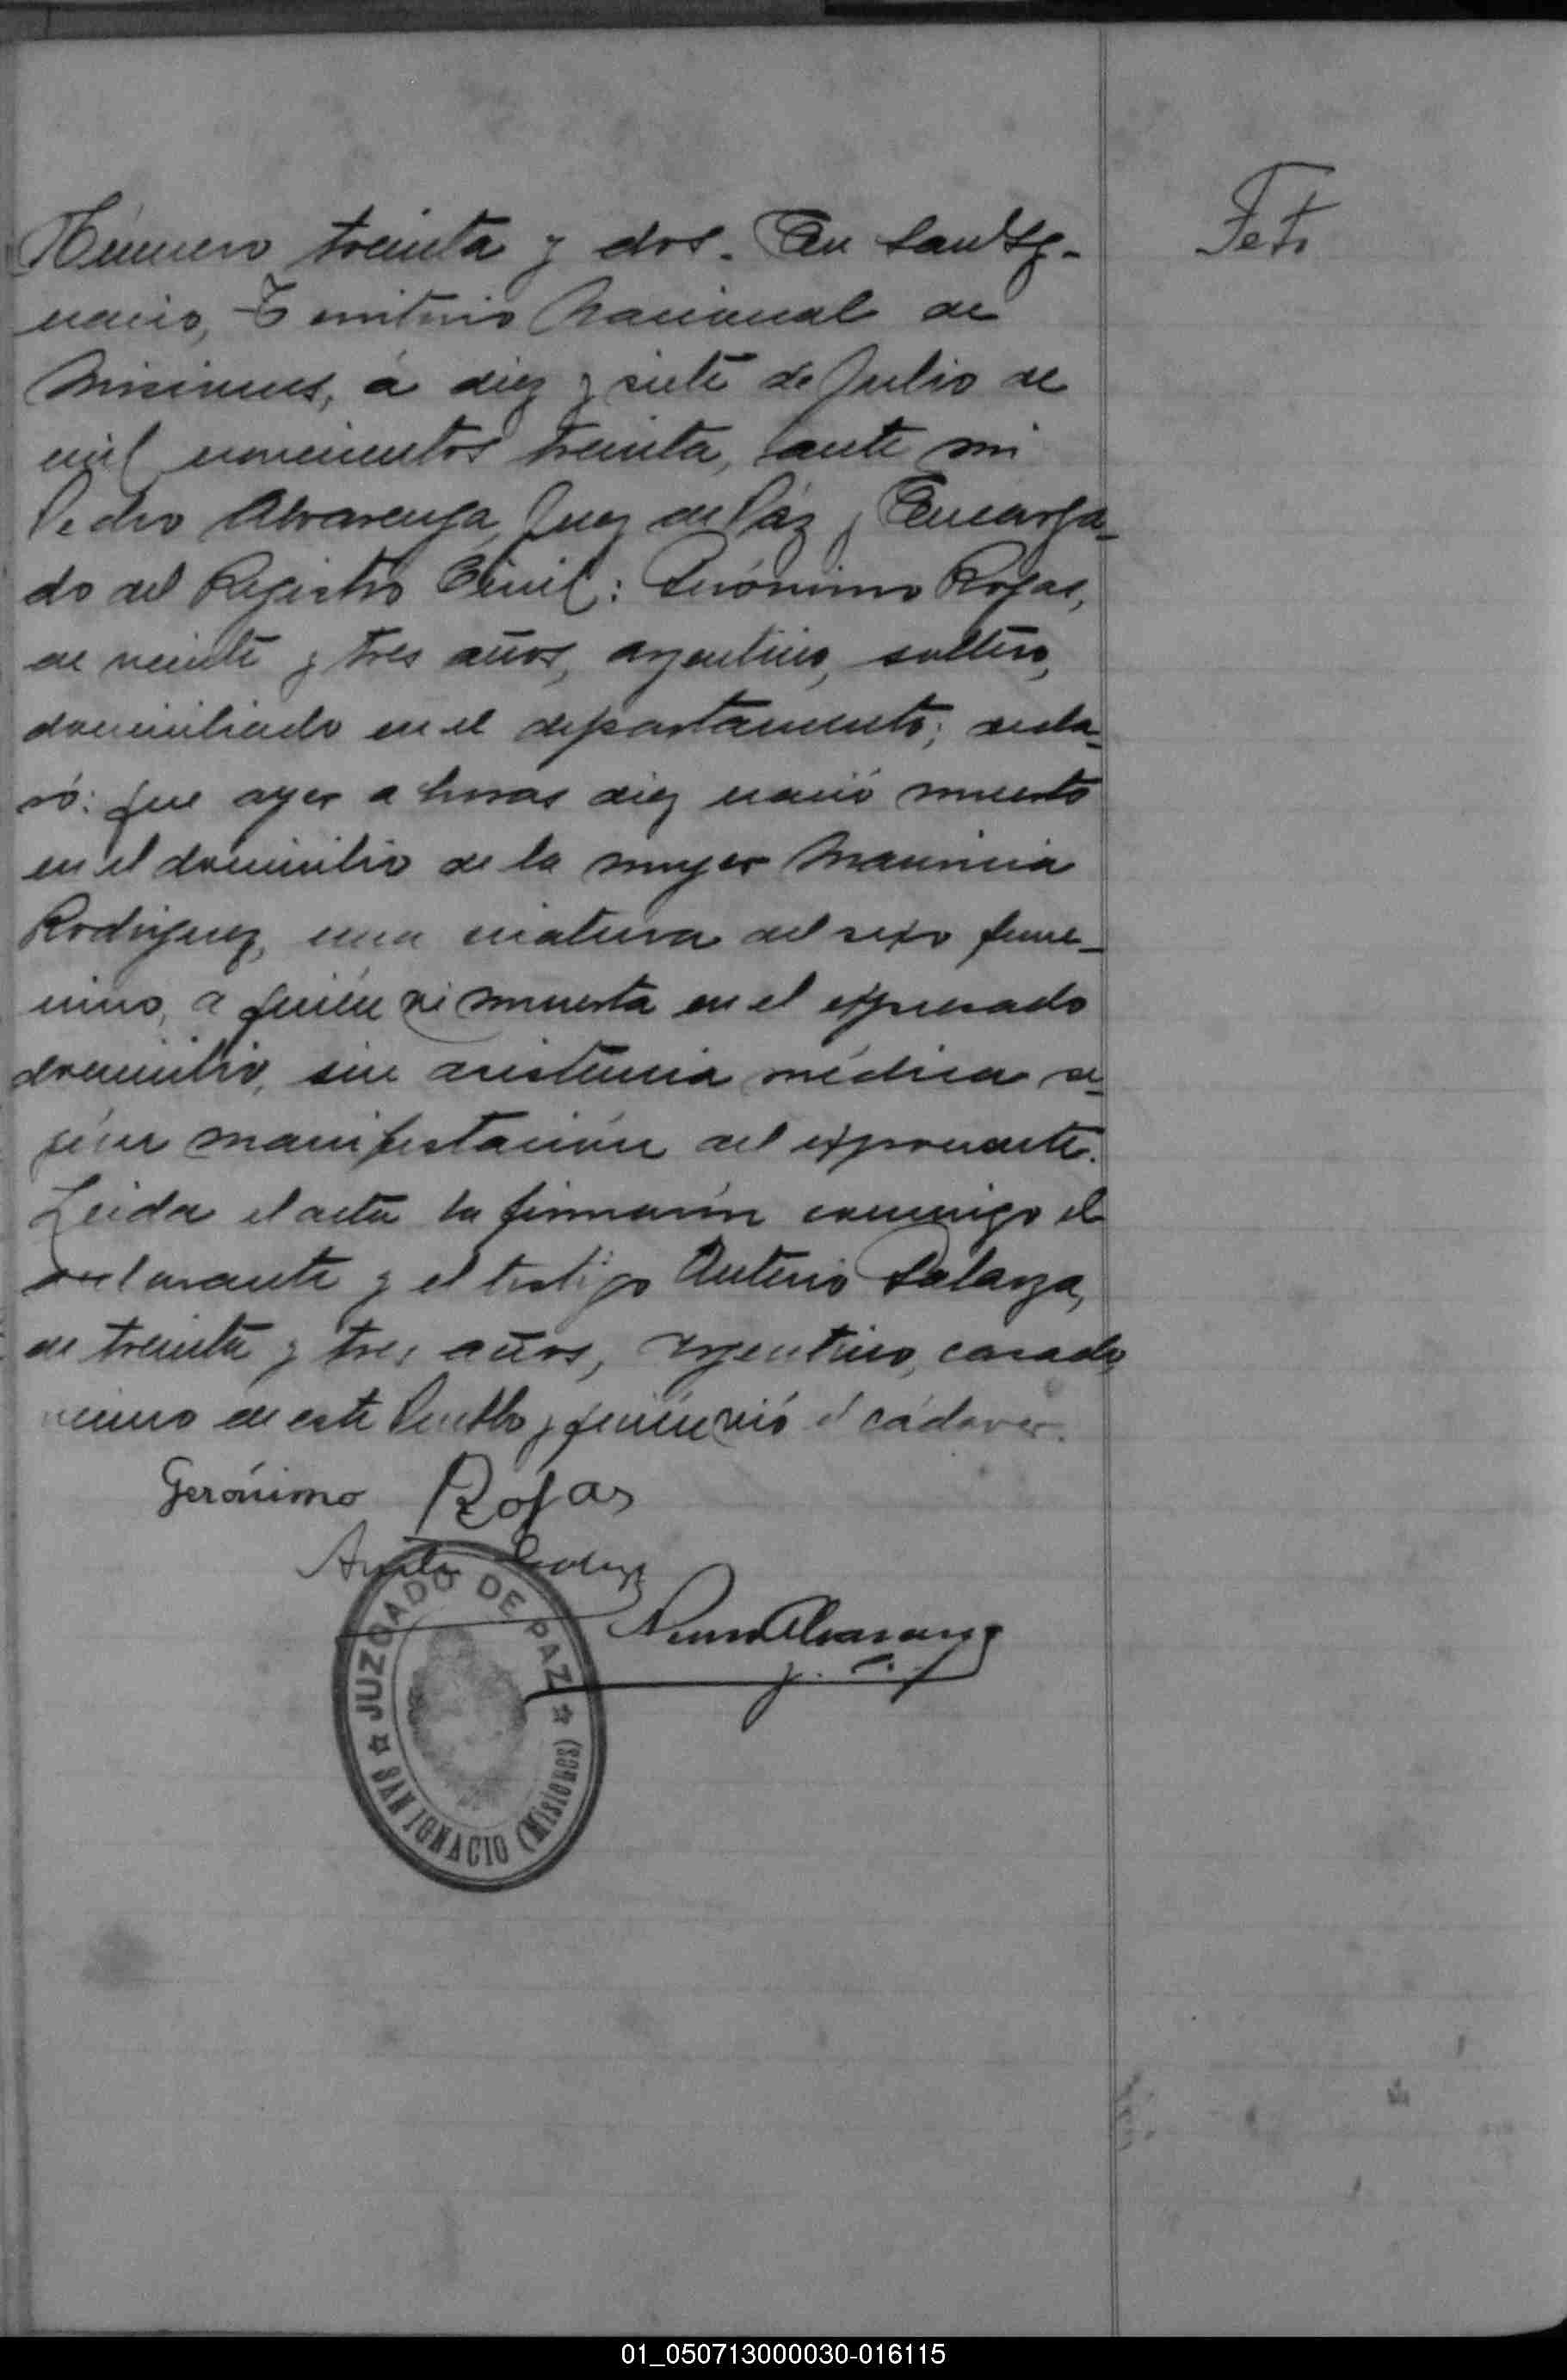 Número treinta y dos. En San Ig-
nacio, Territorio Nacional de
Misiones, á diez y siete de Julio de
mil novecientos treinta, ante mi
Pedro Alvarenga, Juez de Páz y Encarga-
do del Registro Civil: Gerónimo Rojas,
de veinte y tres años, argentino, soltero,
domiciliado en el departamento; decla-
ró: que ayer a horas diez nació muerto
en el domicilio de la mujer Mauricia
Rodriguez, una criatura del sexo feme-
nino, a quién vi muerta en el expresado
domicilio, sin asistencia médica se-
gún manifestación del exponente.
Leida el acta la firmaron conmigo el
declarante y el testigo Antonio Galarza,
de treinta y tres años, argentino, casado,
vecino de este Pueblo y quién vió el cádaver.
Feto
Gerónimo Rojas
Pedro Alvarenga
J. P.
JUZGADO DE PAZ
SAN IGNACIO (MISIONES)
01_050713000030-016115